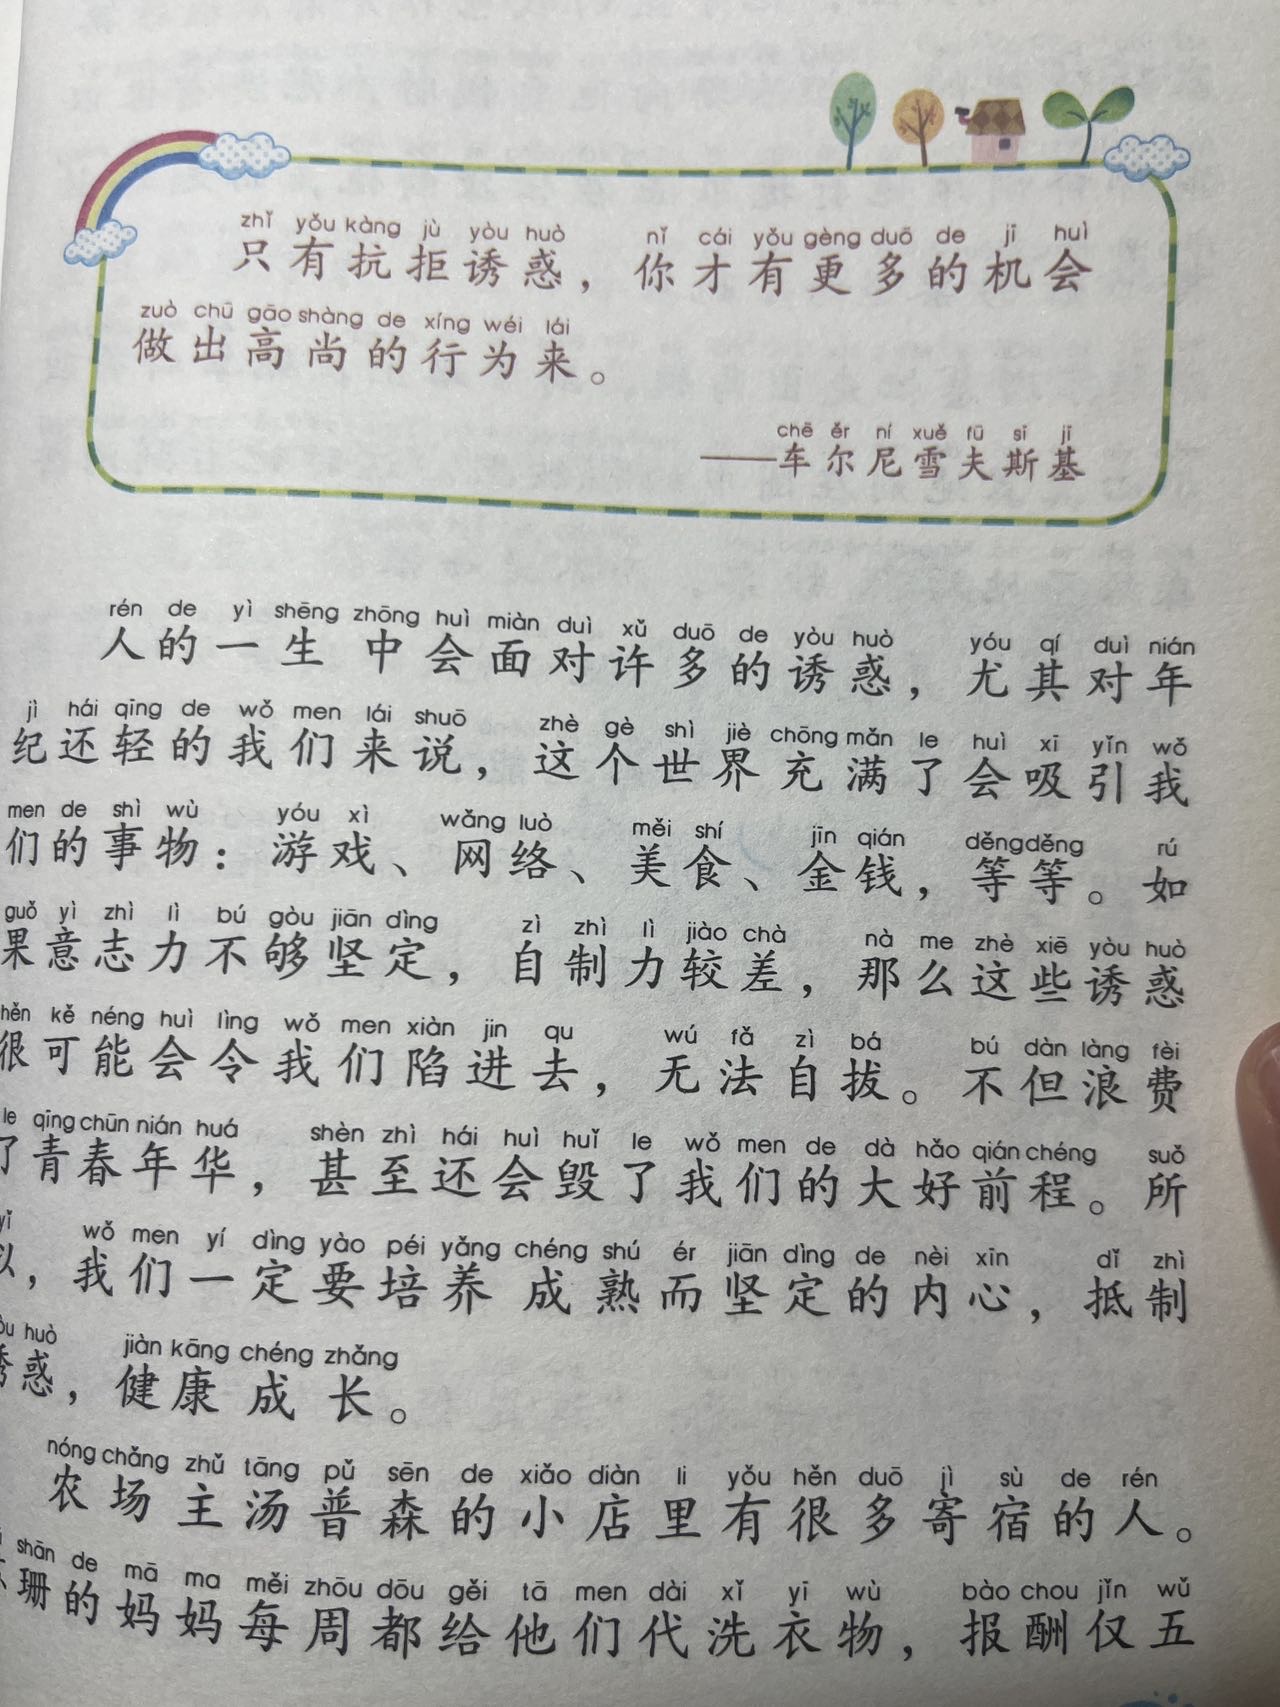 zhǐ yǒu kàng jù yòu huò nǐ cái yǒu gèng duō de jī huì
只有抗拒诱惑，你才有更多的机会
zuò chū gāo shàng de xíng wéi lái
做出高尚的行为来。
chē ěr ní xuě fū sī jī
——车尔尼雪夫斯基
rén de yì shēng zhōng huì miàn duì xǔ duō de yòu huò yóu qí duì nián
人的一生中会面对许多的诱惑，尤其对年
jì hái qīng de wǒ men lái shuō zhè gè shì jiè chōng mǎn le huì xī yǐn wǒ
纪还轻的我们来说，这个世界充满了会吸引我
men de shì wù yóu xì wǎng luò měi shí jīn qián děng děng rú
们的事物：游戏、网络、美食、金钱，等等。如
guǒ yì zhì lì bú gòu jiān dìng zì zhì lì jiào chà nà me zhè xiē yòu huò
果意志力不够坚定，自制力较差，那么这些诱惑
hěn kě néng huì lìng wǒ men xiàn jin qu wú fǎ zì bá bú dàn làng fèi
很可能会令我们陷进去，无法自拔。不但浪费
le qīng chūn nián huá shèn zhì hái huì huǐ le wǒ men de dà hǎo qián chéng suǒ
了青春年华，甚至还会毁了我们的大好前程。所
yǐ wǒ men yí dìng yào péi yǎng chéng shú ér jiān dìng de nèi xīn dǐ zhì
以，我们一定要培养成熟而坚定的内心，抵制
huò jiàn kāng chéng zhǎng
诱惑，健康成长。
nóng chǎng zhǔ tāng pǔ sēn de xiǎo diàn li yǒu hěn duō jì sù de rén
农场主汤普森的小店里有很多寄宿的人。
shān de mā ma měi zhōu dōu gěi tā men dài xǐ yī wù bào chou jǐn wǔ
珊的妈妈每周都给他们代洗衣物，报酬仅五